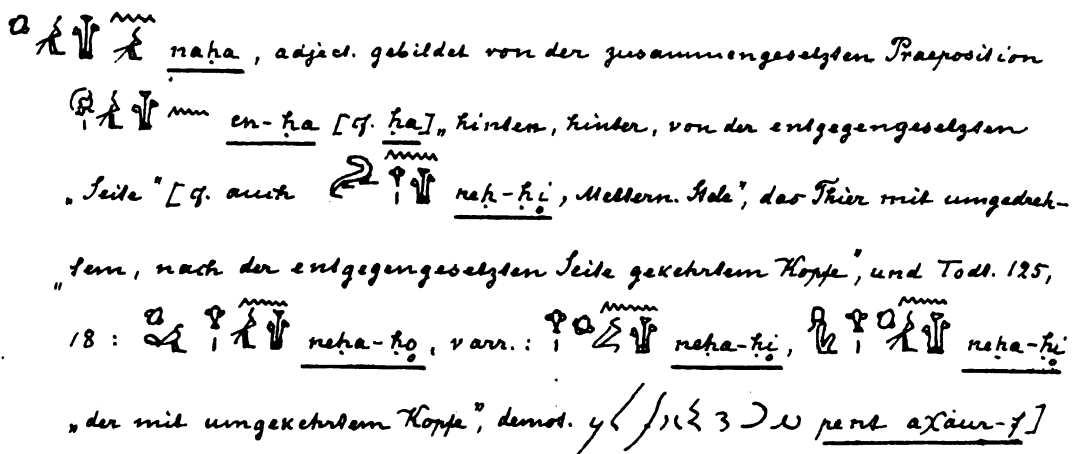 naḥa, adject. gebildet von der zusammengesetzten Praeposition
en-ḥa [cf. ḥa] „hinten, hinter, von der entgegengesetzten
„Seite" [cf. auch neḥ-ḥi, Mettern. Stele", das Thier mit umgedreh-
„tem, nach der entgegengesetzten Seite gekehrtem Kopfe", und Todt. 125,
18: neḥa-ḥo, varr.: neḥa-ḥi, neḥa-ḥi
„der mit umgekehrtem Kopfe", demot. pent aχaur-f]